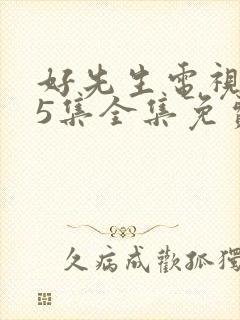 好先生電視
5集全集免費
久病成歡孤獨